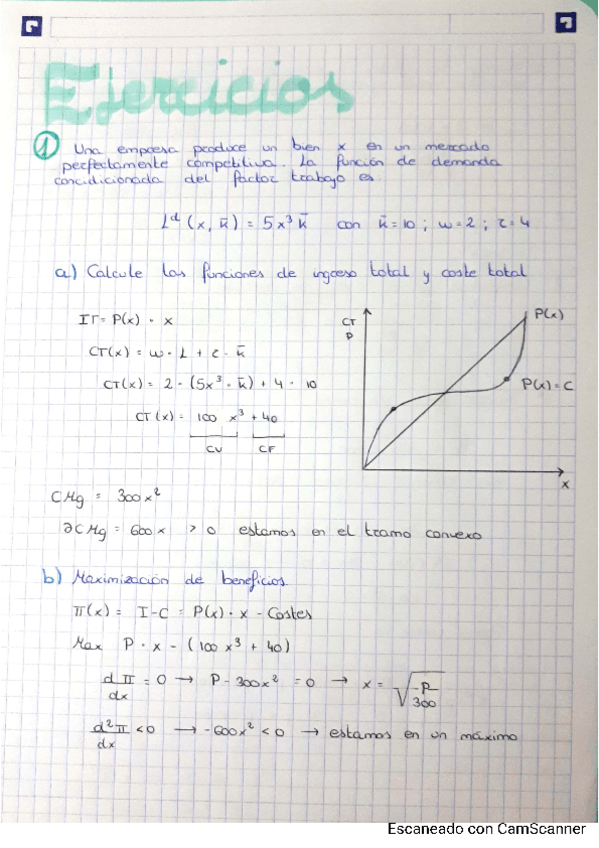 Ejercicios
1 Una empresa produce un bien x en un mercado
perfectamente competitivo. La función de demanda
concidicionada del factor trabajo es.
Lᵈ (x, k̄) = 5x³ k̄ con k̄ = 10 ; w = 2 ; r = 4
a) Calcule las funciones de ingreso total y coste total
IT = P(x) · x
CT(x) = w · L + r · k̄
CT(x) = 2 · (5x³ · k̄) + 4 · 10
CT(x) = 100 x³ + 40
CV CF
CT
P
P(x)
P(x) = C
x
CMg = 300x²
∂CMg = 600x > 0 estamos en el tramo convexo
b) Maximización de beneficios.
π(x) = I - C = P(x) · x - Costes
Max P · x - (100 x³ + 40)
dπ/dx = 0 → P - 300x² = 0 → x = √(-P/300)
d²π/dx < 0 → -600x² < 0 → estamos en un máximo
Escaneado con CamScanner